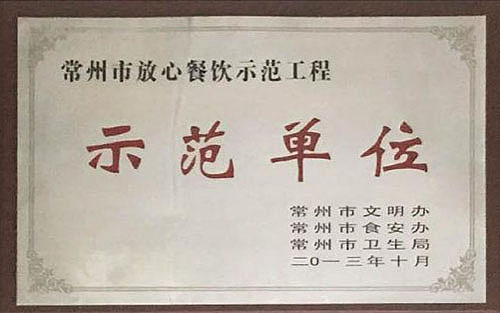 常州市放心餐饮示范工程
示范单位
常州市文明办
常州市食安办
常州市卫生局
二0一三年十月